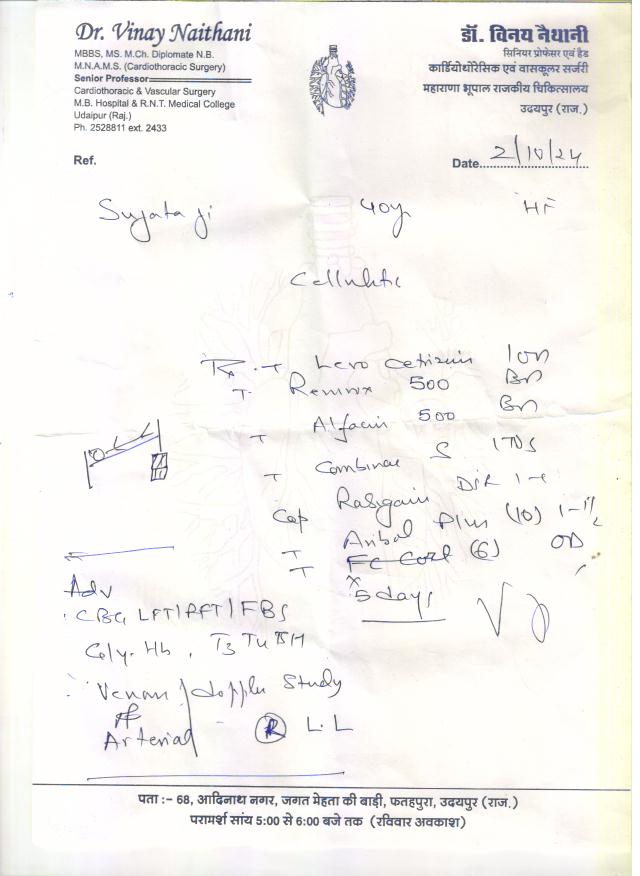 Dr. Vinay Naithani
MBBS, MS. M.Ch. Diplomate N.B.
M.N.A.M.S. (Cardiothoracic Surgery)
Senior Professor
Cardiothoracic & Vascular Surgery
M.B. Hospital & R.N.T. Medical College
Udaipur (Raj.)
Ph. 2528811 ext. 2433
डॉ. विनय नैथानी
सिनियर प्रोफेसर एवं हैड
कार्डियोथोरेसिक एवं वासकूलर सर्जरी
महाराणा भूपाल राजकीय चिकित्सालय
उदयपुर (राज.)
Ref.
Date 2/10/24
Sujata ji 40y
T Levo Cetirizin
T 500
T Alfacin 500
T S
Cap DSR
T Plus (10)
T (6) OD
x 5 days
Adv
CBC LFT/RFT/FBS
Gly. Hb, T3 T4 TSH
Venous / doppler Study
Arterial R L.L
पता :- 68, आदिनाथ नगर, जगत मेहता की बाड़ी, फतहपुरा, उदयपुर (राज.)
परामर्श सांय 5:00 से 6:00 बजे तक (रविवार अवकाश)